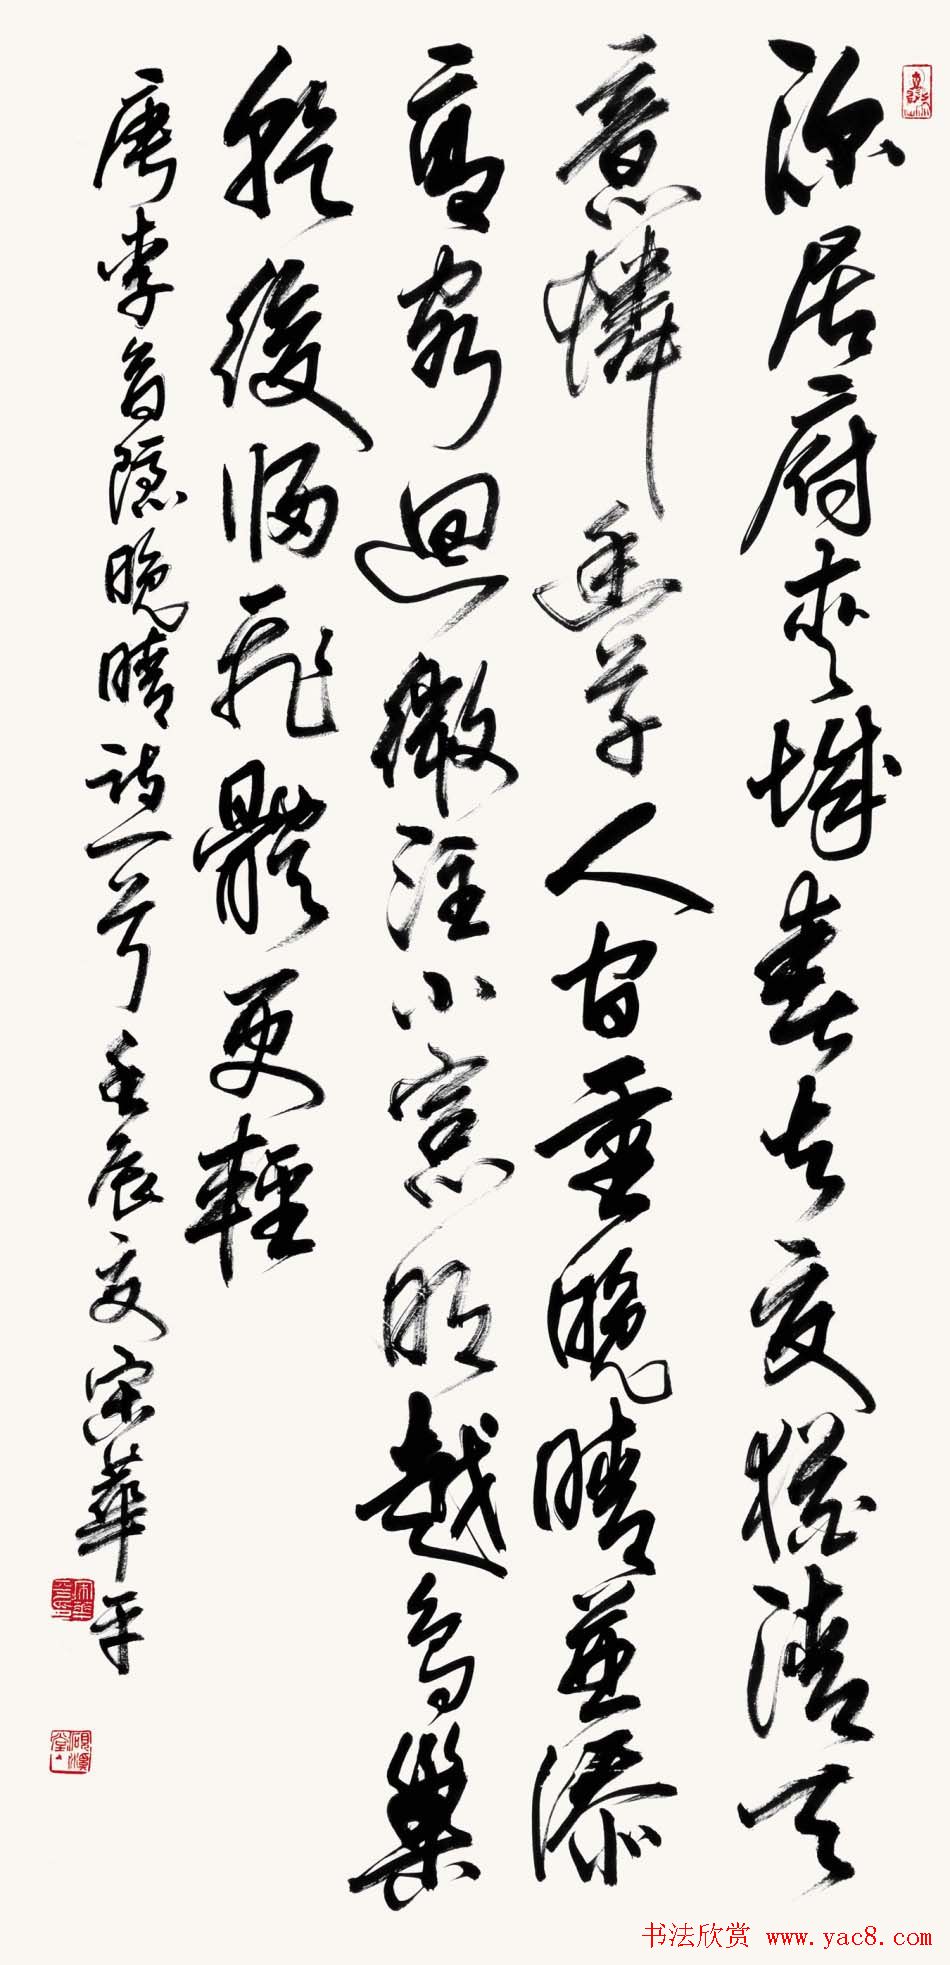 深居府夾城春去夏猶清天
意憐幽草人間重晚晴並添
高閣迥微注小窓明越鳥巢
乾後歸飛體更輕
唐李商隱晚晴詩一首壬辰夏宋華平
书法欣赏 www.yac8.com